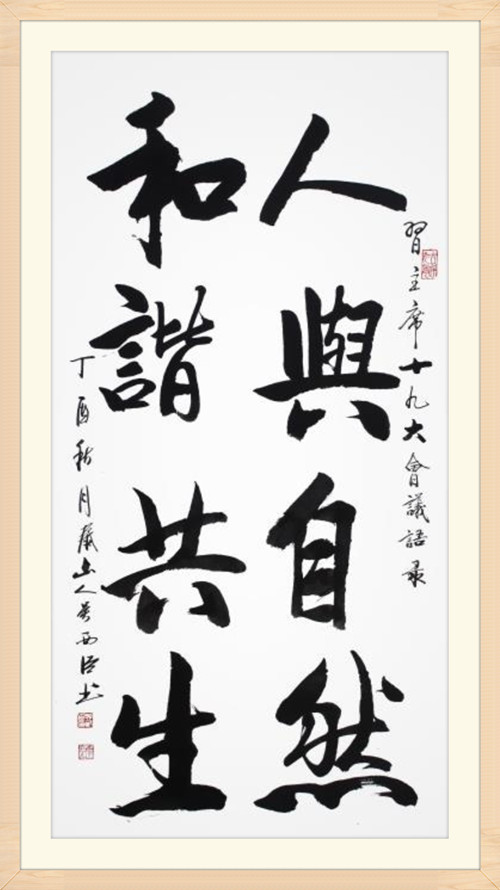 習主席十九大會議語录
人與自然
和諧共生
丁酉秋月蔵山人吴西臣书